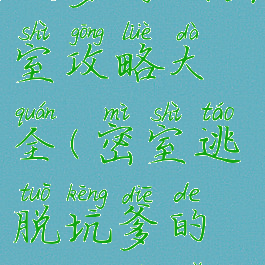 shì gōng lüè dà
室攻略大
quán mì shì táo
全(密室逃
tuō kēng diē de
脱坑爹的